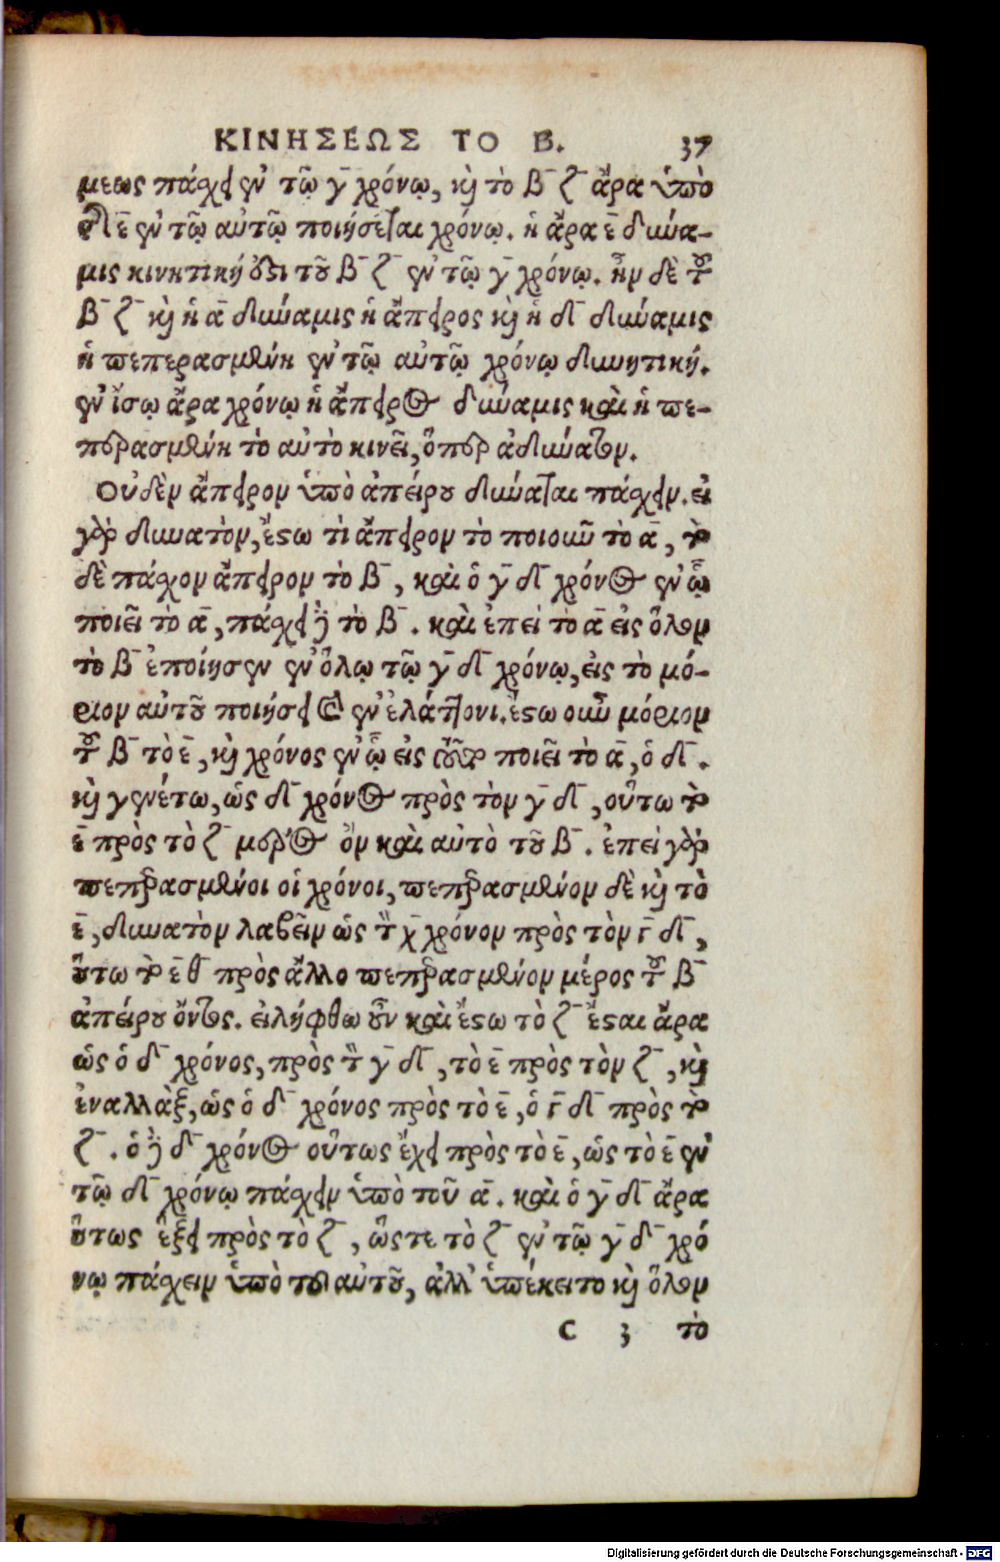 ΚΙΝΗΣΕΩΣ ΤΟ Β. 37
μεως πάχει ἐν τῷ γ̄ χρόνῳ, καὶ τὸ β̄ ζ̄ ἄρα ὑπὸ
τῆς ε̄ ἐν τῷ αὐτῷ ποιήσεται χρόνῳ. ἡ ἄρα ε̄ δύνα-
μις κινητική ἐστι τοῦ β̄ ζ̄ ἐν τῷ γ̄ χρόνῳ. ἦν δὲ τοῦ
β̄ ζ̄ καὶ ἡ ᾱ δύναμις ἡ ἄπειρος καὶ ἡ δ̄ δύναμις
ἡ πεπερασμένη ἐν τῷ αὐτῷ χρόνῳ δυνητική.
ἐν ἴσῳ ἄρα χρόνῳ ἡ ἄπειρος δύναμις καὶ ἡ πε-
περασμένη τὸ αὐτὸ κινεῖ, ὅπερ ἀδύνατον.
Οὐδὲν ἄπειρον ὑπὸ ἀπείρου δύναται πάχειν. εἰ
γὰρ δυνατὸν, ἔστω τὶ ἄπειρον τὸ ποιοῦν τὸ ᾱ, τὸ
δὲ πάχον ἄπειρον τὸ β̄, καὶ ὁ γ̄ δ̄ χρόνος ἐν ᾧ
ποιεῖ τὸ ᾱ, πάχει δὲ τὸ β̄. καὶ ἐπεὶ τὸ ᾱ εἰς ὅλον
τὸ β̄ ἐποίησεν ἐν ὅλῳ τῷ γ̄ δ̄ χρόνῳ, εἰς τὸ μό-
ριον αὐτοῦ ποιήσει ἐν ἐλάττονι. ἔστω οὖν μόριον
τοῦ β̄ τὸ ε̄, καὶ χρόνος ἐν ᾧ εἰς τοῦτο ποιεῖ τὸ ᾱ, ὁ δ̄.
καὶ γενέτω, ὡς δ̄ χρόνος πρὸς τὸν γ̄ δ̄, οὕτω τὸ
ε̄ πρὸς τὸ ζ̄ μέρος ὂν καὶ αὐτὸ τοῦ β̄. ἐπεὶ γὰρ
πεπερασμένοι οἱ χρόνοι, πεπερασμένον δὲ καὶ τὸ
ε̄, δυνατὸν λαβεῖν ὡς τὸν χ̄ χρόνον πρὸς τὸν γ̄ δ̄,
οὕτω τὸ ε̄ θ̄ πρὸς ἄλλο πεπερασμένον μέρος τοῦ β̄
ἀπείρου ὄντος. εἰλήφθω οὖν καὶ ἔστω τὸ ζ̄ ἔσται ἄρα
ὡς ὁ δ̄ χρόνος, πρὸς τὸν γ̄ δ̄, τὸ ε̄ πρὸς τὸν ζ̄, καὶ
ἐναλλὰξ, ὡς ὁ δ̄ χρόνος πρὸς τὸ ε̄, ὁ γ̄ δ̄ πρὸς τὸ
ζ̄. ὁ δὲ δ̄ χρόνος οὕτως ἔχει πρὸς τὸ ε̄, ὡς τὸ ε̄ ἐν
τῷ δ̄ χρόνῳ πάχειν ὑπὸ τοῦ ᾱ. καὶ ὁ γ̄ δ̄ ἄρα
οὕτως ἕξει πρὸς τὸ ζ̄, ὥστε τὸ ζ̄ ἐν τῷ γ̄ δ̄ χρό
νῳ πάχειν ὑπὸ τοῦ αὐτοῦ, ἀλλ' ὑπέκειτο καὶ ὅλον
C 3 τὸ
Digitalisierung gefördert durch die Deutsche Forschungsgemeinschaft - DFG